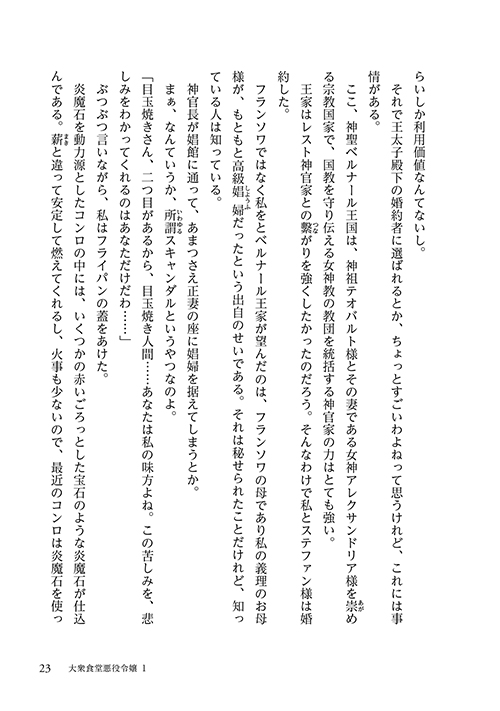 らいしか利用価値なんてないし。
それで王太子殿下の婚約者に選ばれるとか、ちょっとすごいわよねって思うけれど、これには事
情がある。
ここ、神聖ベルナール王国は、神祖テオバルト様とその妻である女神アレクサンドリア様を崇め
る宗教国家で、国教を守り伝える女神教の教団を統括する神官家の力はとても強い。
王家はレスト神官家との繋がりを強くしたかったのだろう。そんなわけで私とステファン様は婚
約した。
フランソワではなく私をとベルナール王家が望んだのは、フランソワの母であり私の義理のお母
様が、もともと高級娼婦だったという出自のせいである。それは秘せられたことだけれど、知っ
ている人は知っている。
神官長が娼館に通って、あまつさえ正妻の座に娼婦を据えてしまうとか。
まぁ、なんていうか、所謂スキャンダルというやつなのよ。
「目玉焼きさん、二つ目があるから、目玉焼き人間……あなたは私の味方よね。この苦しみを、悲
しみをわかってくれるのはあなただけだわ……」
ぶつぶつ言いながら、私はフライパンの蓋をあけた。
炎魔石を動力源としたコンロの中には、いくつかの赤いごろっとした宝石のような炎魔石が仕込
んである。薪と違って安定して燃えてくれるし、火事も少ないので、最近のコンロは炎魔石を使っ
23 大衆食堂悪役令嬢 1